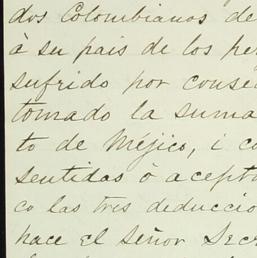 dos Colombianos de
à su pais de los per
sufrido por conse
tomado la suma
to de Méjico, i co
sentidas ò acepta
co las tres deduccio
hace el Señor Secr